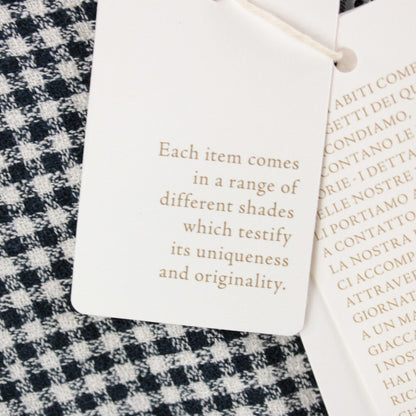 Each item comes
in a range of
different shades
which testify
its uniqueness
and originality.
ABITI COME
GETTI DEI QU
CONDIAMO,
CONTANO LE
ORIE - I DETTA
ELLE NOSTRE
LI PORTIAMO
A CONTATTO
LA NOSTRA
CI ACCOMP
ATTRAVE
GIORNA
A UN MA
GIACCA
I NOS
HAL
RIC